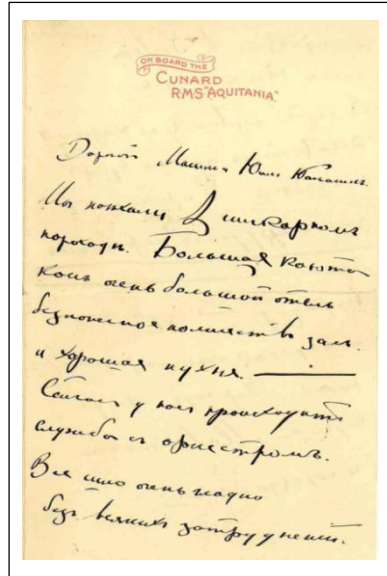 ON BOARD THE
CUNARD
RMS "AQUITANIA."
Дорогой
Мы
пароходи. Большая каюта
какъ очень большой отель
безконечное количество залъ.
и хорошая кухня.
Сейчасъ у насъ происходитъ
служба съ оркестромъ.
Все шло очень гладко
безъ всякихъ затрудненій.